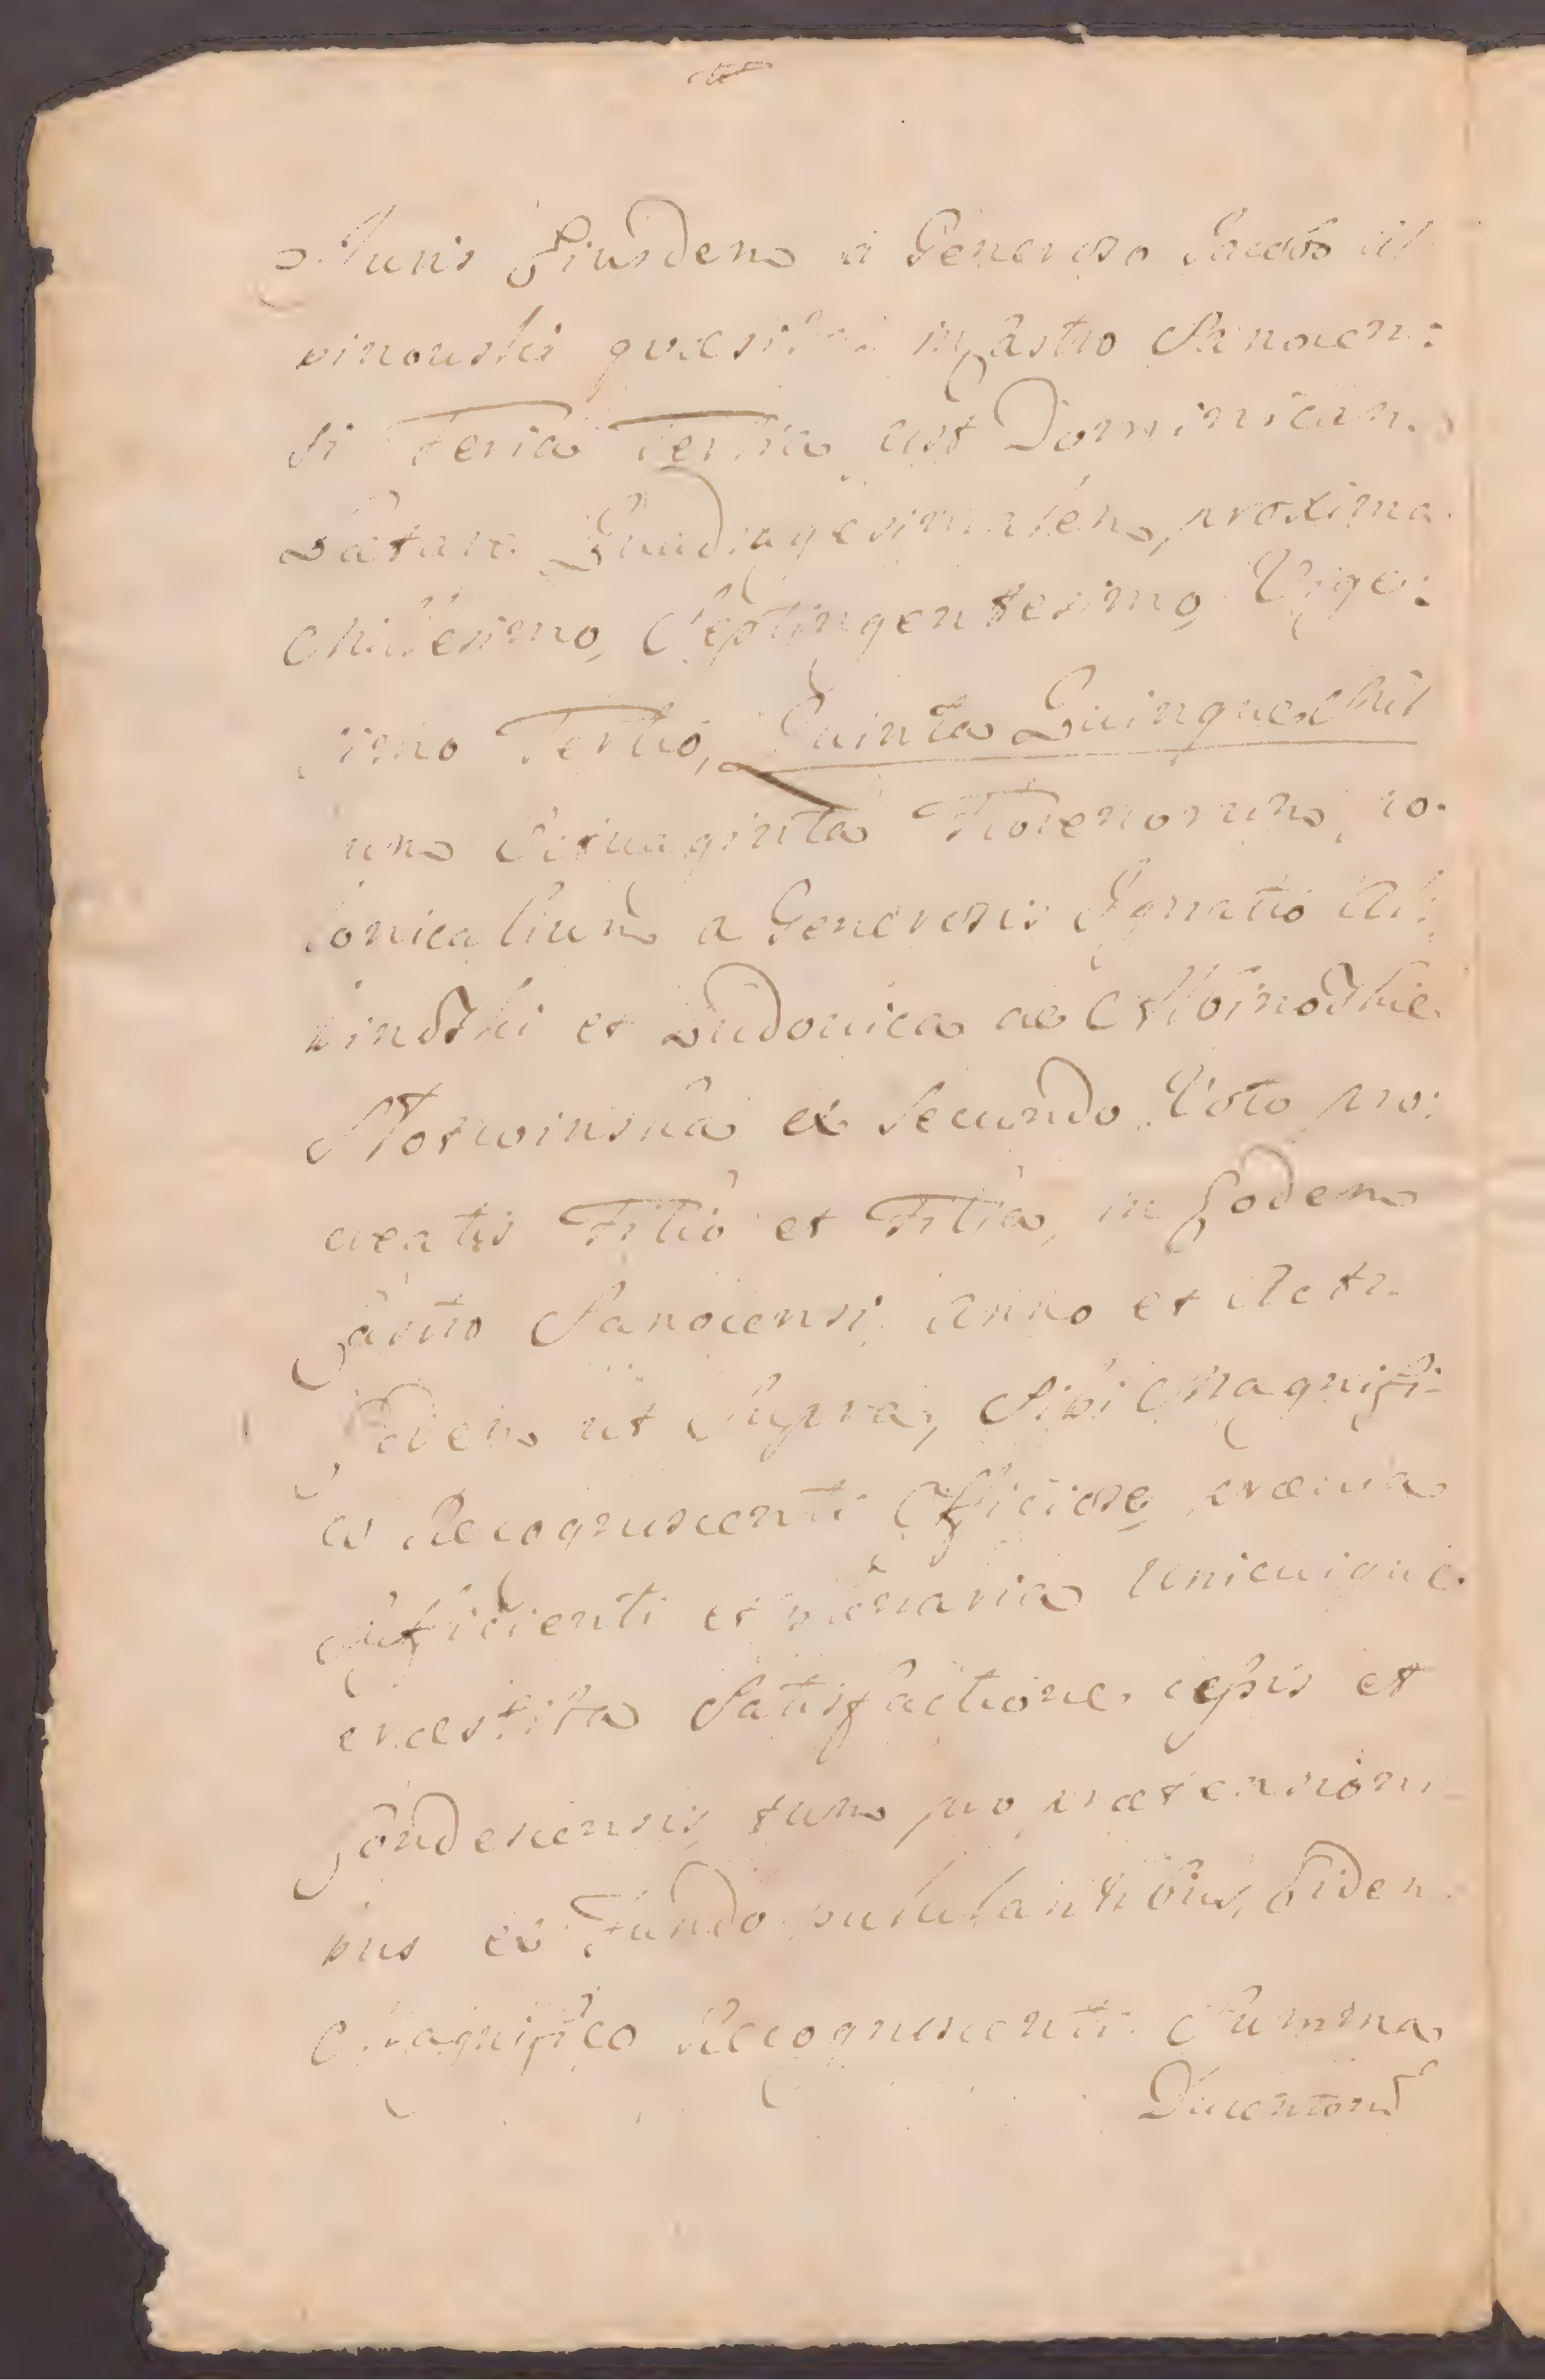 Juris Eiusdem a Generoso Jacobo Al
binowski quæsiti in Castro Sanocen:
si Feria Tertia post Dominicam
Lætare Quadragesimalem, proxima
Millesimo, Septingentesimo Vige:
simo Tertio, Quinta Quinque Mil
lium Octuaginta Florenorum, Po-
lonicalium a Generosis Ignatio Al:
binowski et Ludovica de
ex Secundo Voto pro:
creatis Filio et Filia, in Eodem
Castro Sanocensi Anno et Acti-
ut Supra, Sibi Magnifi-
co Recognoscenti Officiose prævia
sufficienti et plenaria Unicuique
præstita Satisfactione cessis et
Condescensis, tum pro prætensioni
bus eo Fundo pululantibus, Eidem
Magnifico Recognoscenti Summa
Ducentorum